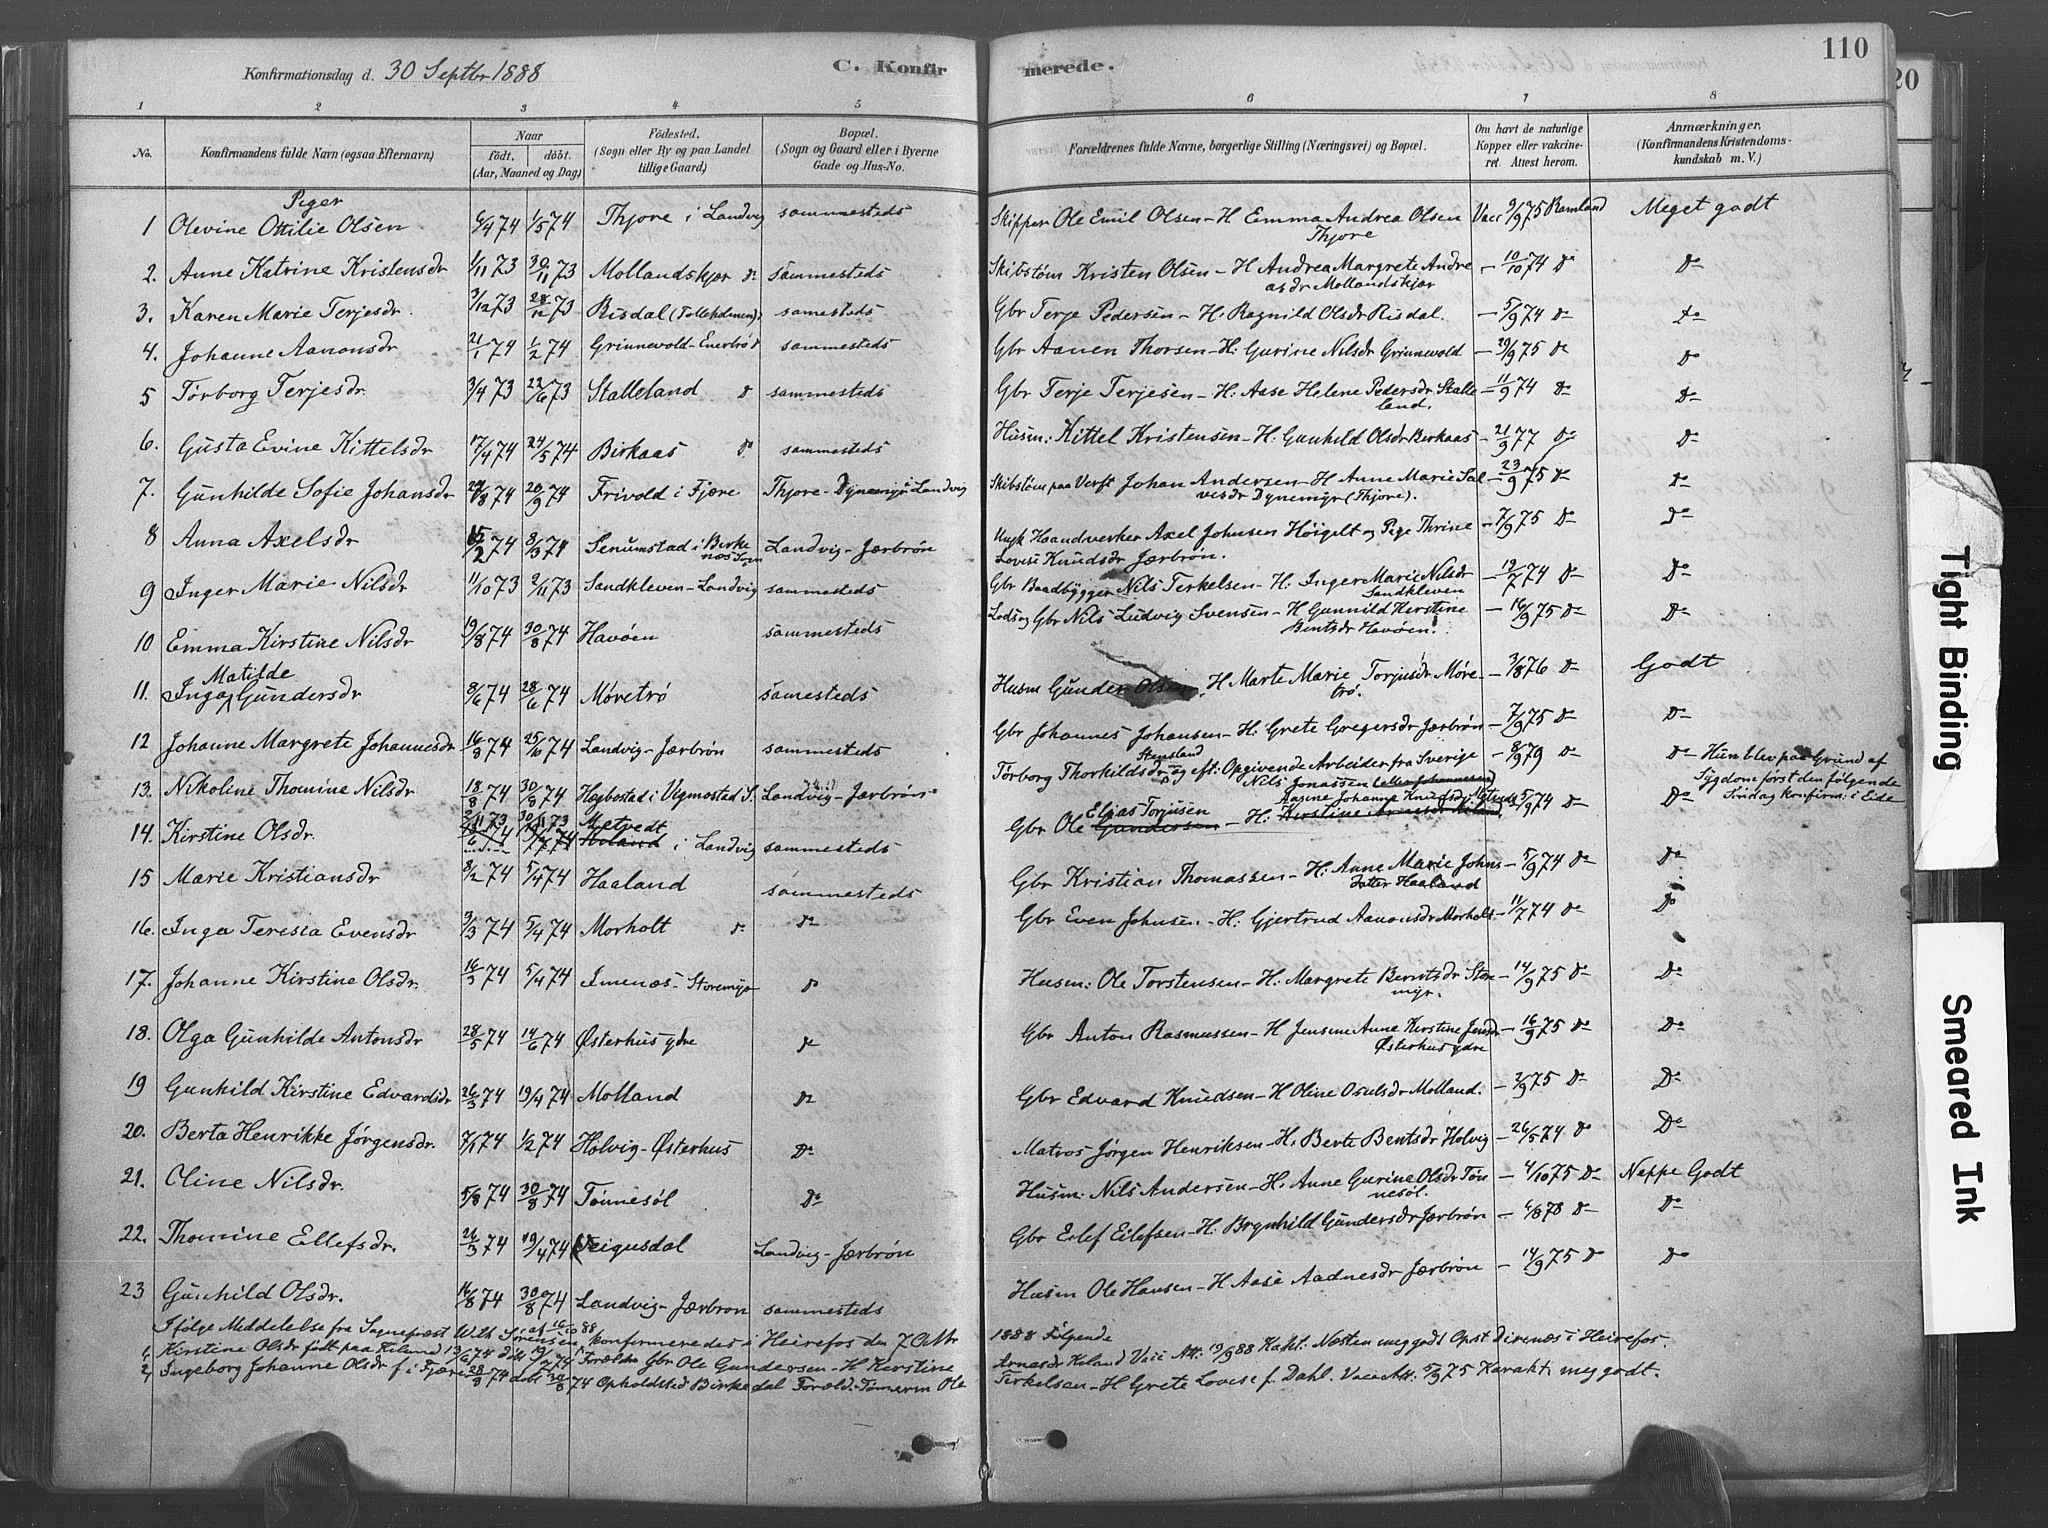 110
20
Konfirmationsdag d. 30 Septbr 1888
C. Konfirmerede.
1 2 3 4 5 6 7 8
No.
Konfirmandens fulde Navn (ogsaa Efternavn)
Naar födt. döbt. (Aar, Maaned og Dag)
Födested. (Sogn eller By og paa Landet tillige Gaard)
Bopæl. (Sogn og Gaard eller i Byerne Gade og Hus-No.
Forældrenes fulde Navne, borgerlige Stilling (Næringsvei) og Bopæl.
Om havt de naturlige Kopper eller vakcineret. Attest herom.
Anmærkninger. (Konfirmandens Kristendomskundskab m. V.)
Piger
1 Olevine Ottilie Olsen 6/4 74 1/5 74 Thjore i Landvig sammesteds Skipper Ole Emil Olsen - H Emma Andrea Olsen Thjore Vacc 9/9 75 Ramland Meget godt
2. Anne Katrine Kristensdr 1/11 73 30/11 73 Mollandskjær do sammesteds Skibstøm Kristen Olsen - H. Andrea Margrete Andreasdr Mollandskjær - 10/10 74 Do Do
3. Karen Marie Terjesdr. 3/12 73 28/12 73 Risdal sammesteds Gbr Terje Pedersen - H. Ragnild Olsdr Risdal. - 5/9 74 Do Do
4. Johanne Aanonsdr 21/1 74 1/2 74 Grinnevold - Enerbrø sammesteds Gbr Aanen Thorsen - H: Gurine Nilsdr Grinnevold - 29/9 75 Do Do
5 Torborg Terjesdr. 3/4 73 22/6 73 Stalleland do sammesteds Gbr Terje Terjesen - H: Aase Helene Pedersdr Stalleland. - 11/9 74 Do Do
6. Gusta Evine Kittelsdr 17/4 74 24/5 74 Birkaas do sammesteds Husm: Kittel Kristensen - H. Gunhild Olsdr Birkaas - 21/9 77 Do Do
7. Gunhilde Sofie Johansdr 29/8 74 20/9 74 Frivold i Fjære Thjore - Dynemyr Landvig Skibstøm paa Verft Johan Andersen - H Anne Marie Salvesdr Dynemyr (Thjore). - 23/9 75 Do Do
8 Anna Axelsdr 15/2 74 8/3 74 Senumstad i Birkenes Sogn Landvig - Jærbrøn Ungk Haandverker Axel Johnsen Høigelt og Pige Thrine Lovise Knudsdr Jærbrøn. - 7/9 75 Do Do
9 Inger Marie Nilsdr 11/10 73 2/11 73 Sandkleven - Landvig sammesteds Gbr Baadbygger Nils Terkelsen - H. Inger Marie Nilsdr Sandkleven - 19/7 74 Do Do
10 Emma Kirstine Nilsdr 19/8 74 30/8 74 Havøen sammesteds Lods og Gbr Nils Ludvig Svensen - H Gunnild Kirstine Bentsdr Havøen. - 16/9 75 Do Do
11. Inga Matilde Gundersdr 8/6 74 28/6 74 Møretrø sammesteds Husm Gunder Olsen, H Marte Marie Torjusdr Møretrø. - 3/8 76 Do Godt
12 Johanne Margrete Johannesdr 16/8 74 25/10 74 Landvig - Jærbrøn sammesteds Gbr Johannes Johansen - H: Grete Gregersdr Jærbrøn - 7/9 75 Do Do
13. Nikoline Thomine Nilsdr 18/8 74 30/8 74 Hægbostad i Vegmostad S. Landvig - Jærbrøn Torborg Thorkildsdr Stensland og eft: Opgivende Arbeider fra Sverige Nils Jonassen (eller Johannesen) - 8/9 79 Do Do Hun blev paa Grund af Sygdom først den følgende Søndag konfirm: i Eide
14. Kirstine Olsdr. 2/11 73 30/11 73 Metvedt i Landvig sammesteds Gbr Ole Elias Torjusen - H: Aasine Johanne Knudsdr - 5/9 74 Do Do
15 Marie Kristiansdr 8/2 74 5/4 74 Haaland sammesteds Gbr Kristian Thomassen - H: Anne Marie Johnsdatter Haaland - 5/9 74 Do Do
16. Inga Teresia Evensdr 3/3 74 5/4 74 Morholt do do Gbr Even Johnsen - H: Gjertrud Aanonsdr Morholt - 11/7 74 Do Do
17. Johanne Kirstine Olsdr. 16/3 74 5/4 74 Imenæs - Storemyr do Husm: Ole Torstensen - H: Margrete Berntsdr Storemyr. - 14/9 75 Do Do
18. Olga Gunhilde Antonsdr 28/5 74 14/6 74 Østerhus ydre do Gbr Anton Rasmussen - H Jensine Anne Kirstine Jensdr Østerhus ydre - 16/9 75 Do Do
19 Gunhild Kirstine Edvardsdr 26/3 74 19/4 74 Molland do Gbr Edvard Knudsen - H Oline Osulsdr Molland. - 2/9 75 Do Do
20. Berta Henrikke Jørgensdr. 7/1 74 1/2 74 Holvig - Østerhus Do Matros Jørgen Henriksen - H: Berte Bentsdr Holvig - 26/5 74 Do Do
21. Oline Nilsdr. 5/8 74 30/8 74 Tønnesøl Do Husm: Nils Andersen - H: Anne Gurine Olsdr Tønnesøl. - 4/10 75 Do Neppe Godt
22. Thomine Ellefsdr. 26/3 74 19/4 74 Veigusdal Landvig - Jærbrøn Gbr Eilef Eilefsen - H: Brynhild Gundersdr Jærbrøn - 4/8 78 Do Do
23 Gunhild Olsdr. 16/8 74 30/8 74 Landvig - Jærbrøn sammesteds Husm Ole Hansen - H Aase Aadnesdr Jærbrøn - 14/9 75 Do Do
Ifølge Meddelelse fra Sognepræst Wilh Sørensen af 16/10 88 konfirmeredes i Heirefos den 7 Oktbr 1888 Følgende
1, Kirstine Olsdr født paa Kiland 13/6 74 døbt 19/7 74 Forældre Gbr Ole Gundersen - H Kirstine Arnesdr Kiland Vacc Att: 19/9 88 Karakt: Næsten meg godt Opst Birenæs i Heirefos.
2, Ingeborg Johanne Olsdr f. i Fjære 28/9 74 døbt 30/8 74 Opholdsted Birkedal Foræld. Tømerm Ole Terkelsen - H Grete Lovise f. Dahl. Vacc Att: 5/9 75 Karakt: meg godt.
Tight Binding
Smeared Ink